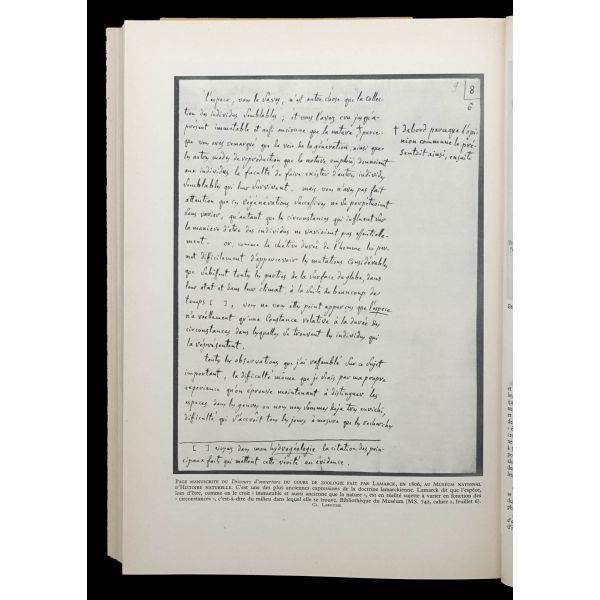 9 | 8
6
l'espèce, vous le savez, n'est autre chose que la collec-
tion des individus semblables ; et vous l'avez crue jusqu'à
présent immutable et aussi ancienne que la nature † parce-
que vous avez remarqué que la voie de la génération, ainsi que
les autres modes de reproduction que la nature emploie, donnoient
aux individus la faculté de faire exister d'autres individus
semblables qui leur survivent. mais vous n'avez pas fait
attention que ces régénérations successives ne se perpétuoient
sans varier, qu'autant que les circonstances qui influent sur
la manière d'être des individus ne varioient pas essentielle-
ment. or, comme la chétive durée de l'homme lui per-
met difficilement d'appercevoir les mutations considérables
que subissent toutes les parties de la surface du globe, dans
leur état et dans leur climat à la suite de beaucoup de
temps [ ], vous ne vous êtes point apperçus que l'espece
n'a réellement qu'une constance relative à la durée des
circonstances dans lesquelles se trouvent les individus qui
la représentent.
toutes les observations que j'ai rassemblé sur ce sujet
important, la difficulté même que je sais par ma propre
expérience qu'on éprouve maintenant à distinguer les
espèces dans les genres où nous nous sommes deja très enrichis,
difficulté qui s'accroît tous les jours à mesure que les recherches
† d'abord parceque l'opi-
nion commune la pré-
sentoit ainsi, ensuite
[ ] voyez dans mon hydrogéologie la citation des prin-
cipaux faits qui mettent cette vérité en évidence.
Page manuscrite du Discours d'ouverture du cours de zoologie fait par Lamarck, en 1806, au Muséum national
d'Histoire naturelle. C'est une des plus anciennes expressions de la doctrine lamarckienne. Lamarck dit que l'espèce,
loin d'être, comme on le croit « immutable et aussi ancienne que la nature », est en réalité sujette à varier en fonction des
« circonstances », c'est-à-dire du milieu dans lequel elle se trouve. Bibliothèque du Muséum (MS. 742, cahier 1, feuillet 6).